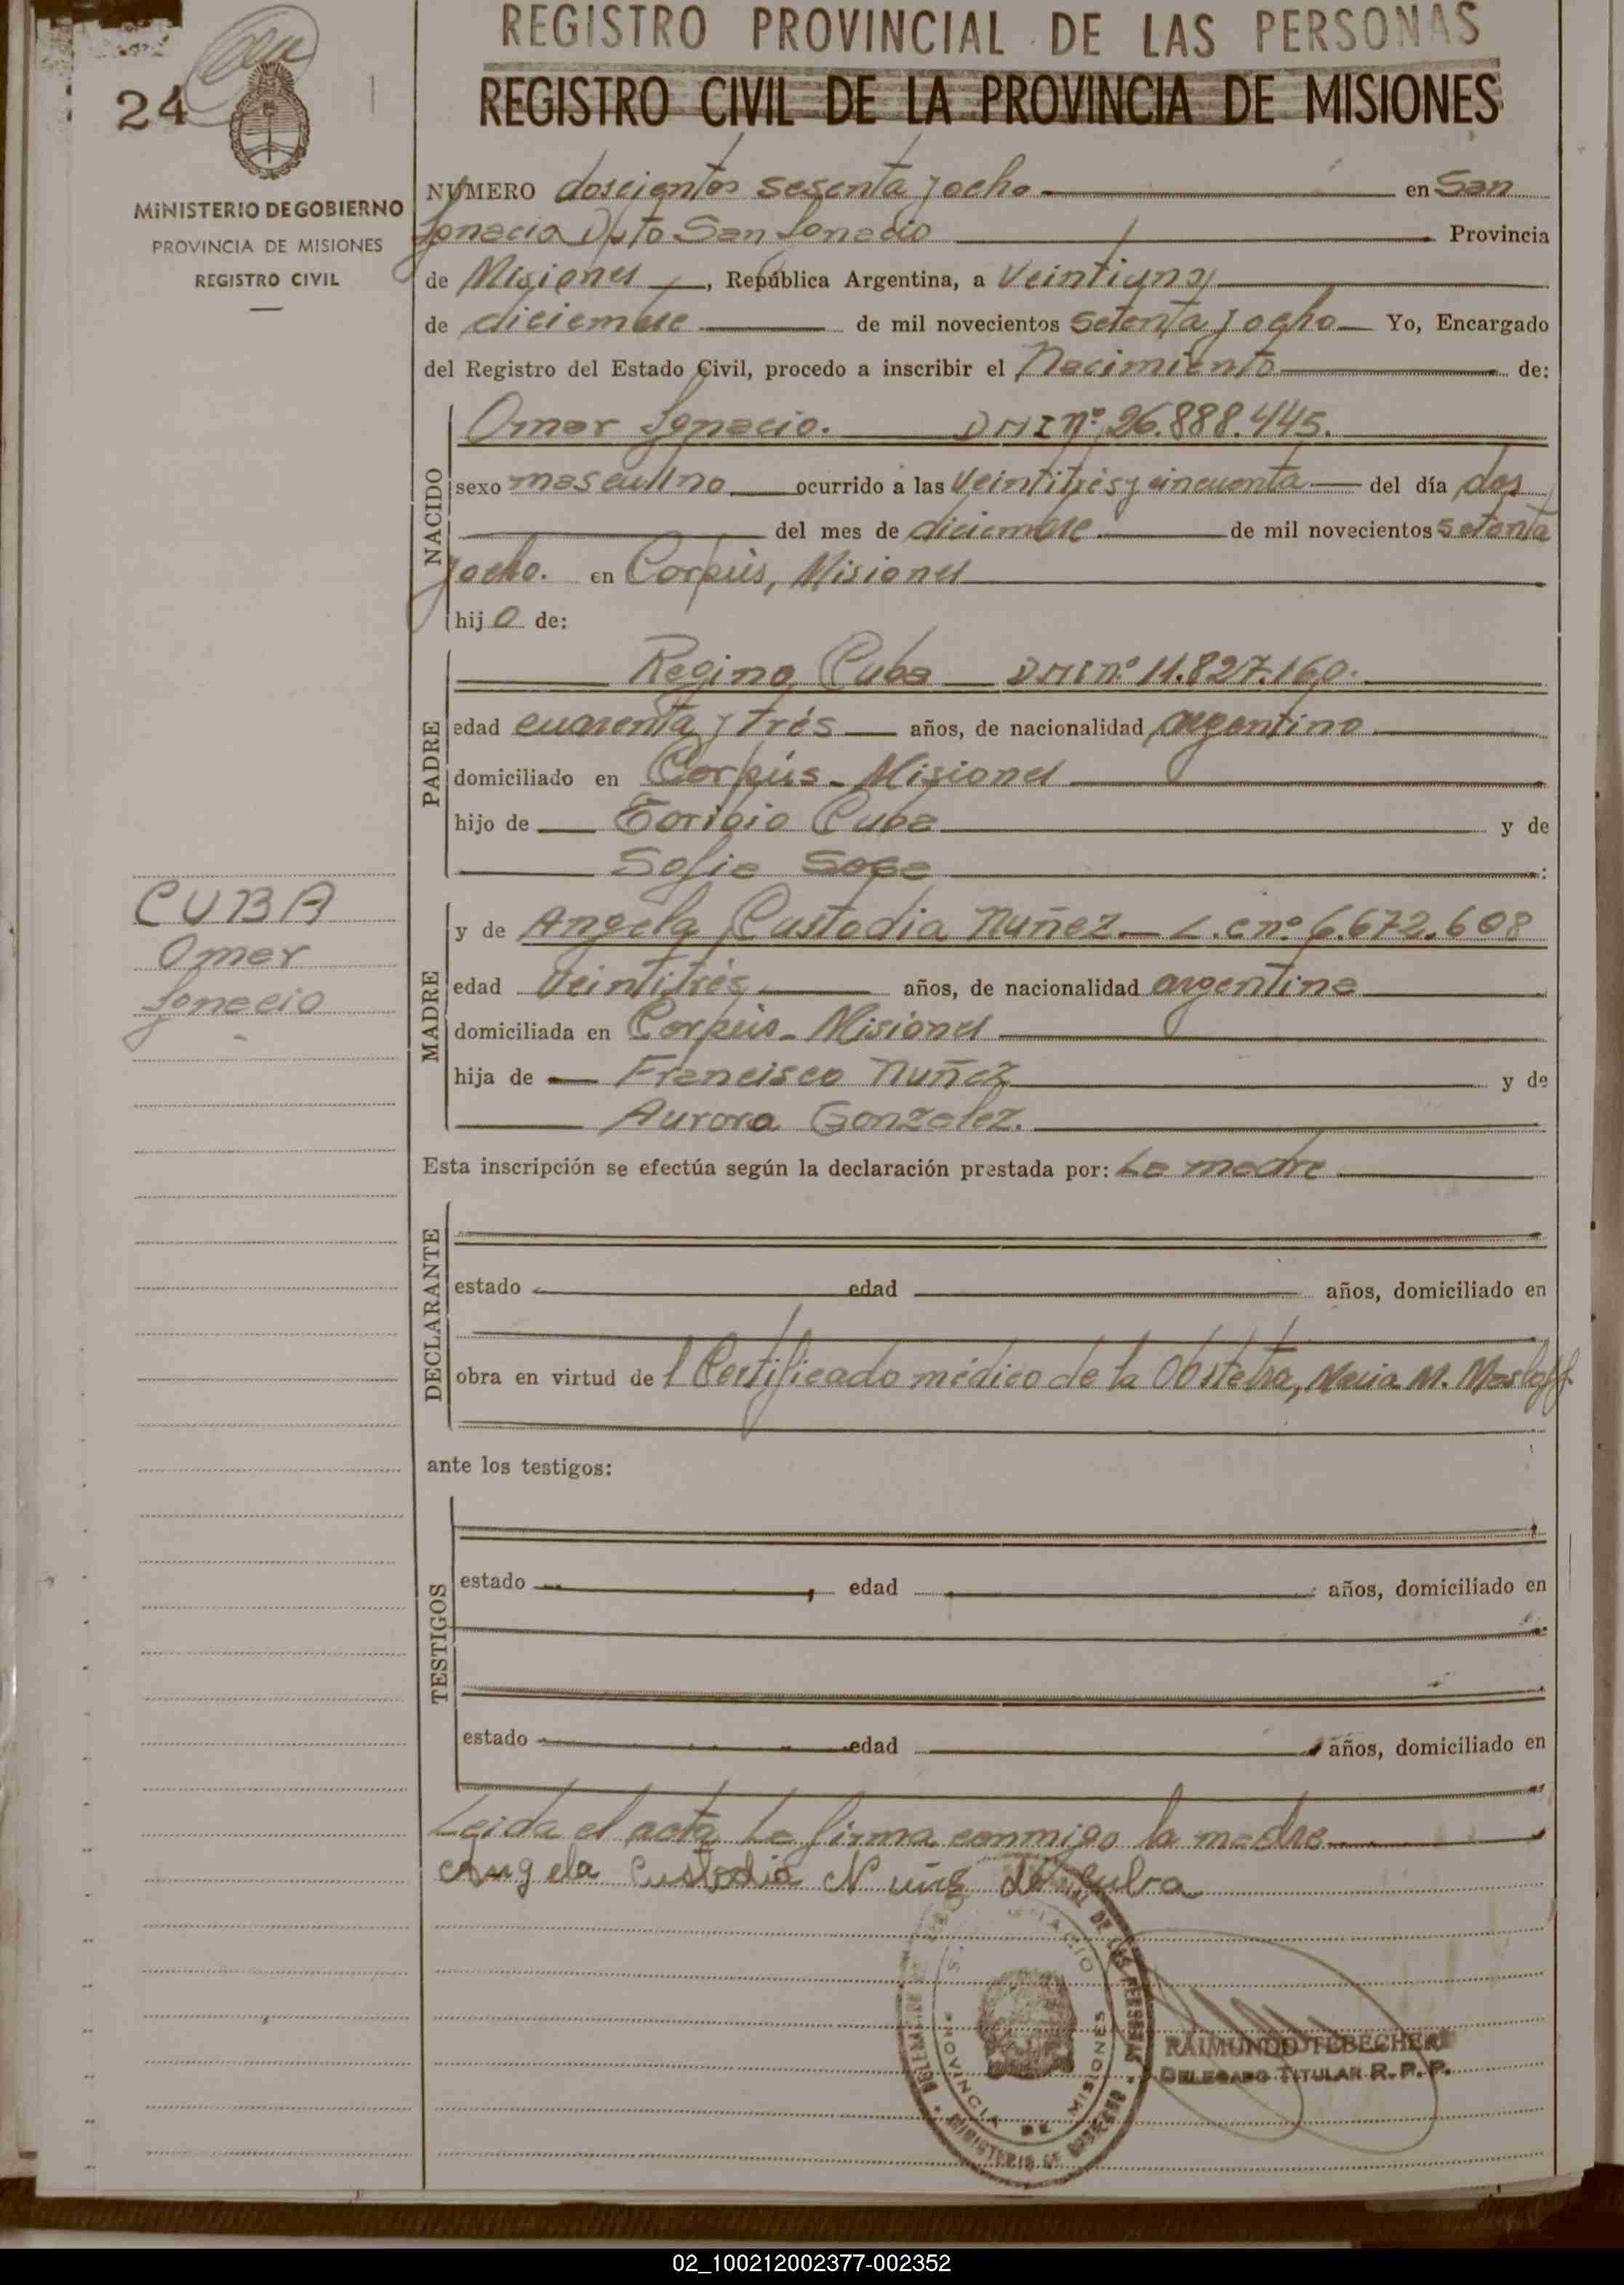 REGISTRO PROVINCIAL DE LAS PERSONAS
REGISTRO CIVIL DE LA PROVINCIA DE MISIONES
24
MINISTERIO DE GOBIERNO
PROVINCIA DE MISIONES
REGISTRO CIVIL
NUMERO doscientos sesenta y ocho en San
Ignacio Dpto San Ignacio Provincia
de Misiones, República Argentina, a veintiuno
de diciembre de mil novecientos setenta y ocho Yo, Encargado
del Registro del Estado Civil, procedo a inscribir el Nacimiento de:
NACIDO
Omar Ignacio. DNI nº 26.888.445.
sexo masculino ocurrido a las veintitrés y cincuenta del día dos
del mes de diciembre de mil novecientos setenta
y ocho. en Corpús, Misiones
hijo de:
PADRE
Regino Cuba DNI nº 11.827.160.
edad cuarenta y trés años, de nacionalidad argentino
domiciliado en Corpús - Misiones
hijo de Toribio Cuba y de
Sofia Sosa:
CUBA
Omar
Ignacio
MADRE
y de Angela Custodia Nuñez - L.C nº 6.672.608
edad veintitrés años, de nacionalidad argentina
domiciliada en Corpús - Misiones
hija de Francisco Nuñez y de
Aurora Gonzalez.
Esta inscripción se efectúa según la declaración prestada por: La madre
DECLARANTE
estado edad años, domiciliado en
obra en virtud del Certificado médico de la Obstetra, Maria M. Masloff
ante los testigos:
TESTIGOS
estado , edad años, domiciliado en
estado edad años, domiciliado en
Leida el acta La firma conmigo la madre
Angela Custodia Nuñes De Cuba
PROVINCIA DE MISIONES
MINISTERIO DE GOBIERNO
RAIMUNDO TEBECHERI
DELEGADO TITULAR R. P. P.
02_100212002377-002352